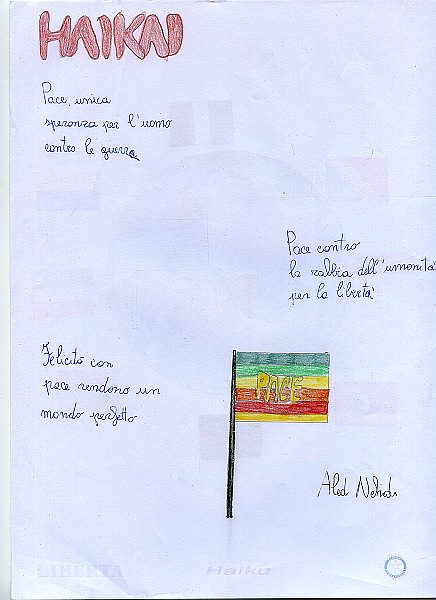 HAIKAI
Pace unica
speranza per l'uomo
contro le guerre
Pace contro
la rabbia dell'umanità
per la libertà
Felicità con
pace rendono un
mondo perfetto
PACE
LIBERTA
Haiku